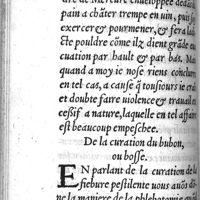 dre de Mercure enueloppee dedās du
pain a chāter trempe en uin, puis se
exercer & pourmener, & fera lad
cte pouldre cōme ilz dient grāde eu
cuation par hault & par bas. Mais
quand a moy ie nose riens conclure
en tel cas, a cause q̄ tousiours ie crai
et doubte faire uiolence & trauail ex
cessif a nature, laquelle en tel affaire
est beaucoup empeschee.
De la curation du bubon,
ou bosse.
EN parlant de la curation de la
fiebure pestilente nous auōs di
ne la maniere de la phlebotomie qui